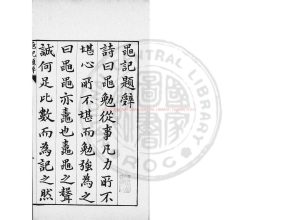 黽記題辭
詩曰黽勉從事凡力所不
堪心所不堪而勉強為之
曰黽黽亦蟲也蟲黽之聲
誠何足比數而為記之然
CENTRAL LIBRARY